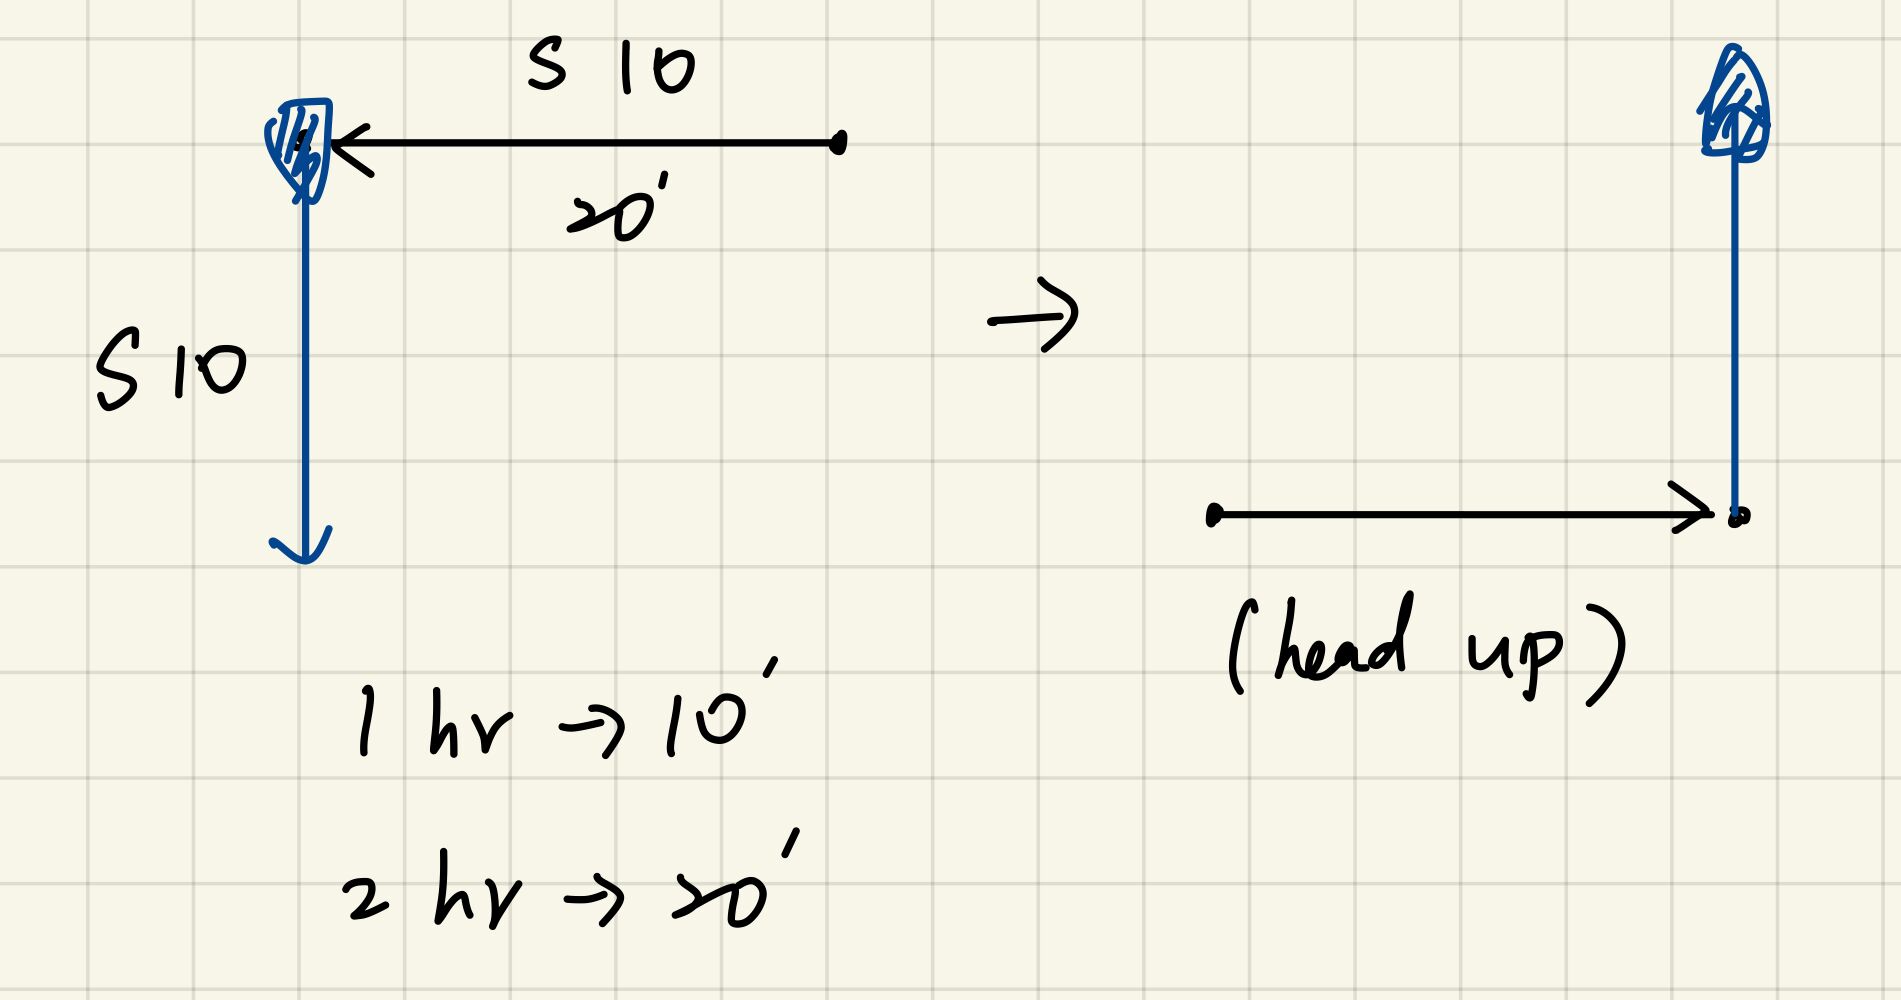 S 10
20'
S 10
→
(head up)
1 hr → 10'
2 hr → 20'